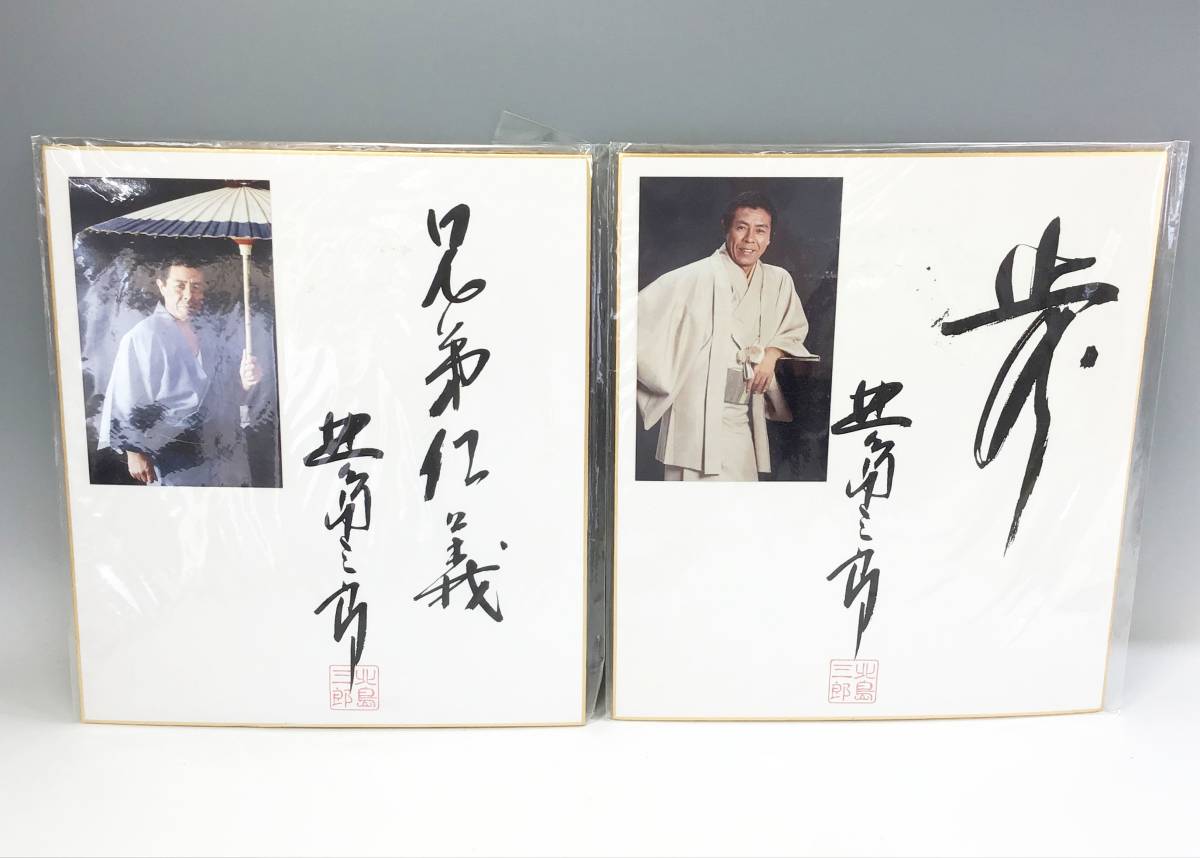 兄弟仁義
北島三郎
北島三郎
歩
北島三郎
北島三郎